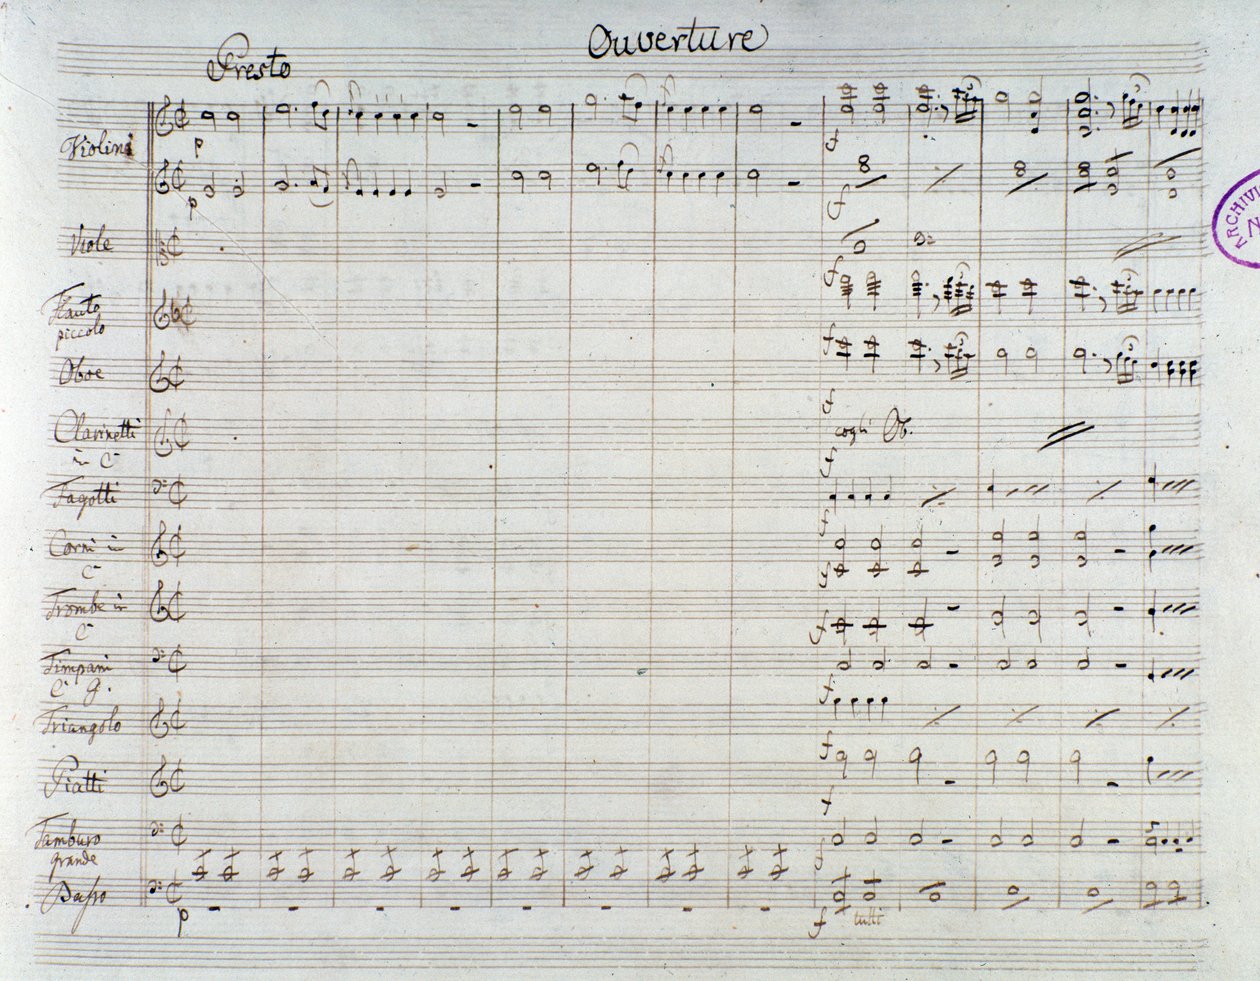 Ouverture
Presto
Violini
p
f
p
f
Viole
f
Flauto
piccolo
f
Oboe
f
Clarinetti
in C
cogli Ob.
f
Fagotti
f
Corni in
C
f
Trombe in
C
f
Timpani
C G.
f
Triangolo
f
Piatti
f
Tamburo
grande
f
Basso
p
f tutti
ARCHIVI